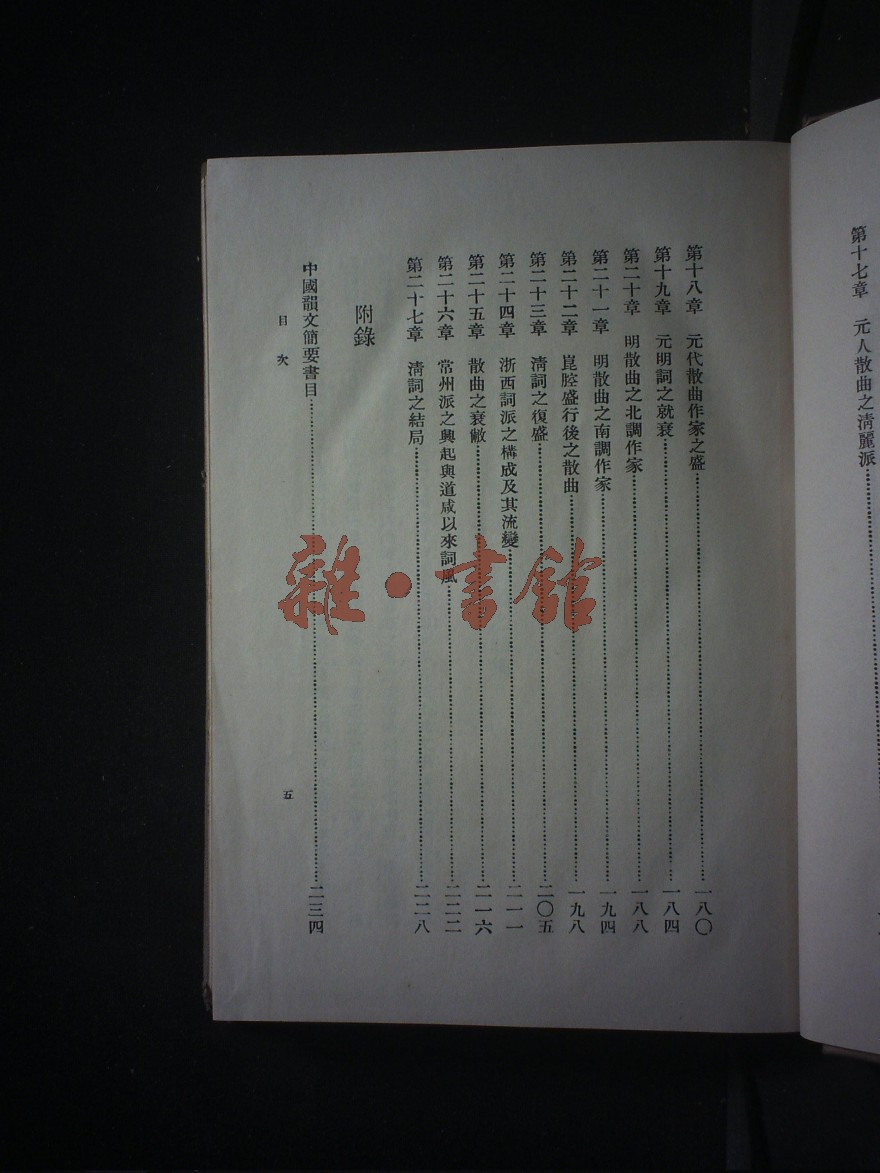 第十七章　元人散曲之淸麗派
第十八章　元代散曲作家之盛……一八〇
第十九章　元明詞之就衰……一八四
第二十章　明散曲之北調作家……一八八
第二十一章　明散曲之南調作家……一九四
第二十二章　崑腔盛行後之散曲……一九八
第二十三章　淸詞之復盛……二〇五
第二十四章　浙西詞派之構成及其流變……二一一
第二十五章　散曲之衰敝……二一六
第二十六章　常州派之興起與道咸以來詞風……二二二
第二十七章　淸詞之結局……二二八
附錄
中國韻文簡要書目……二三四
目次　五
雜·書館